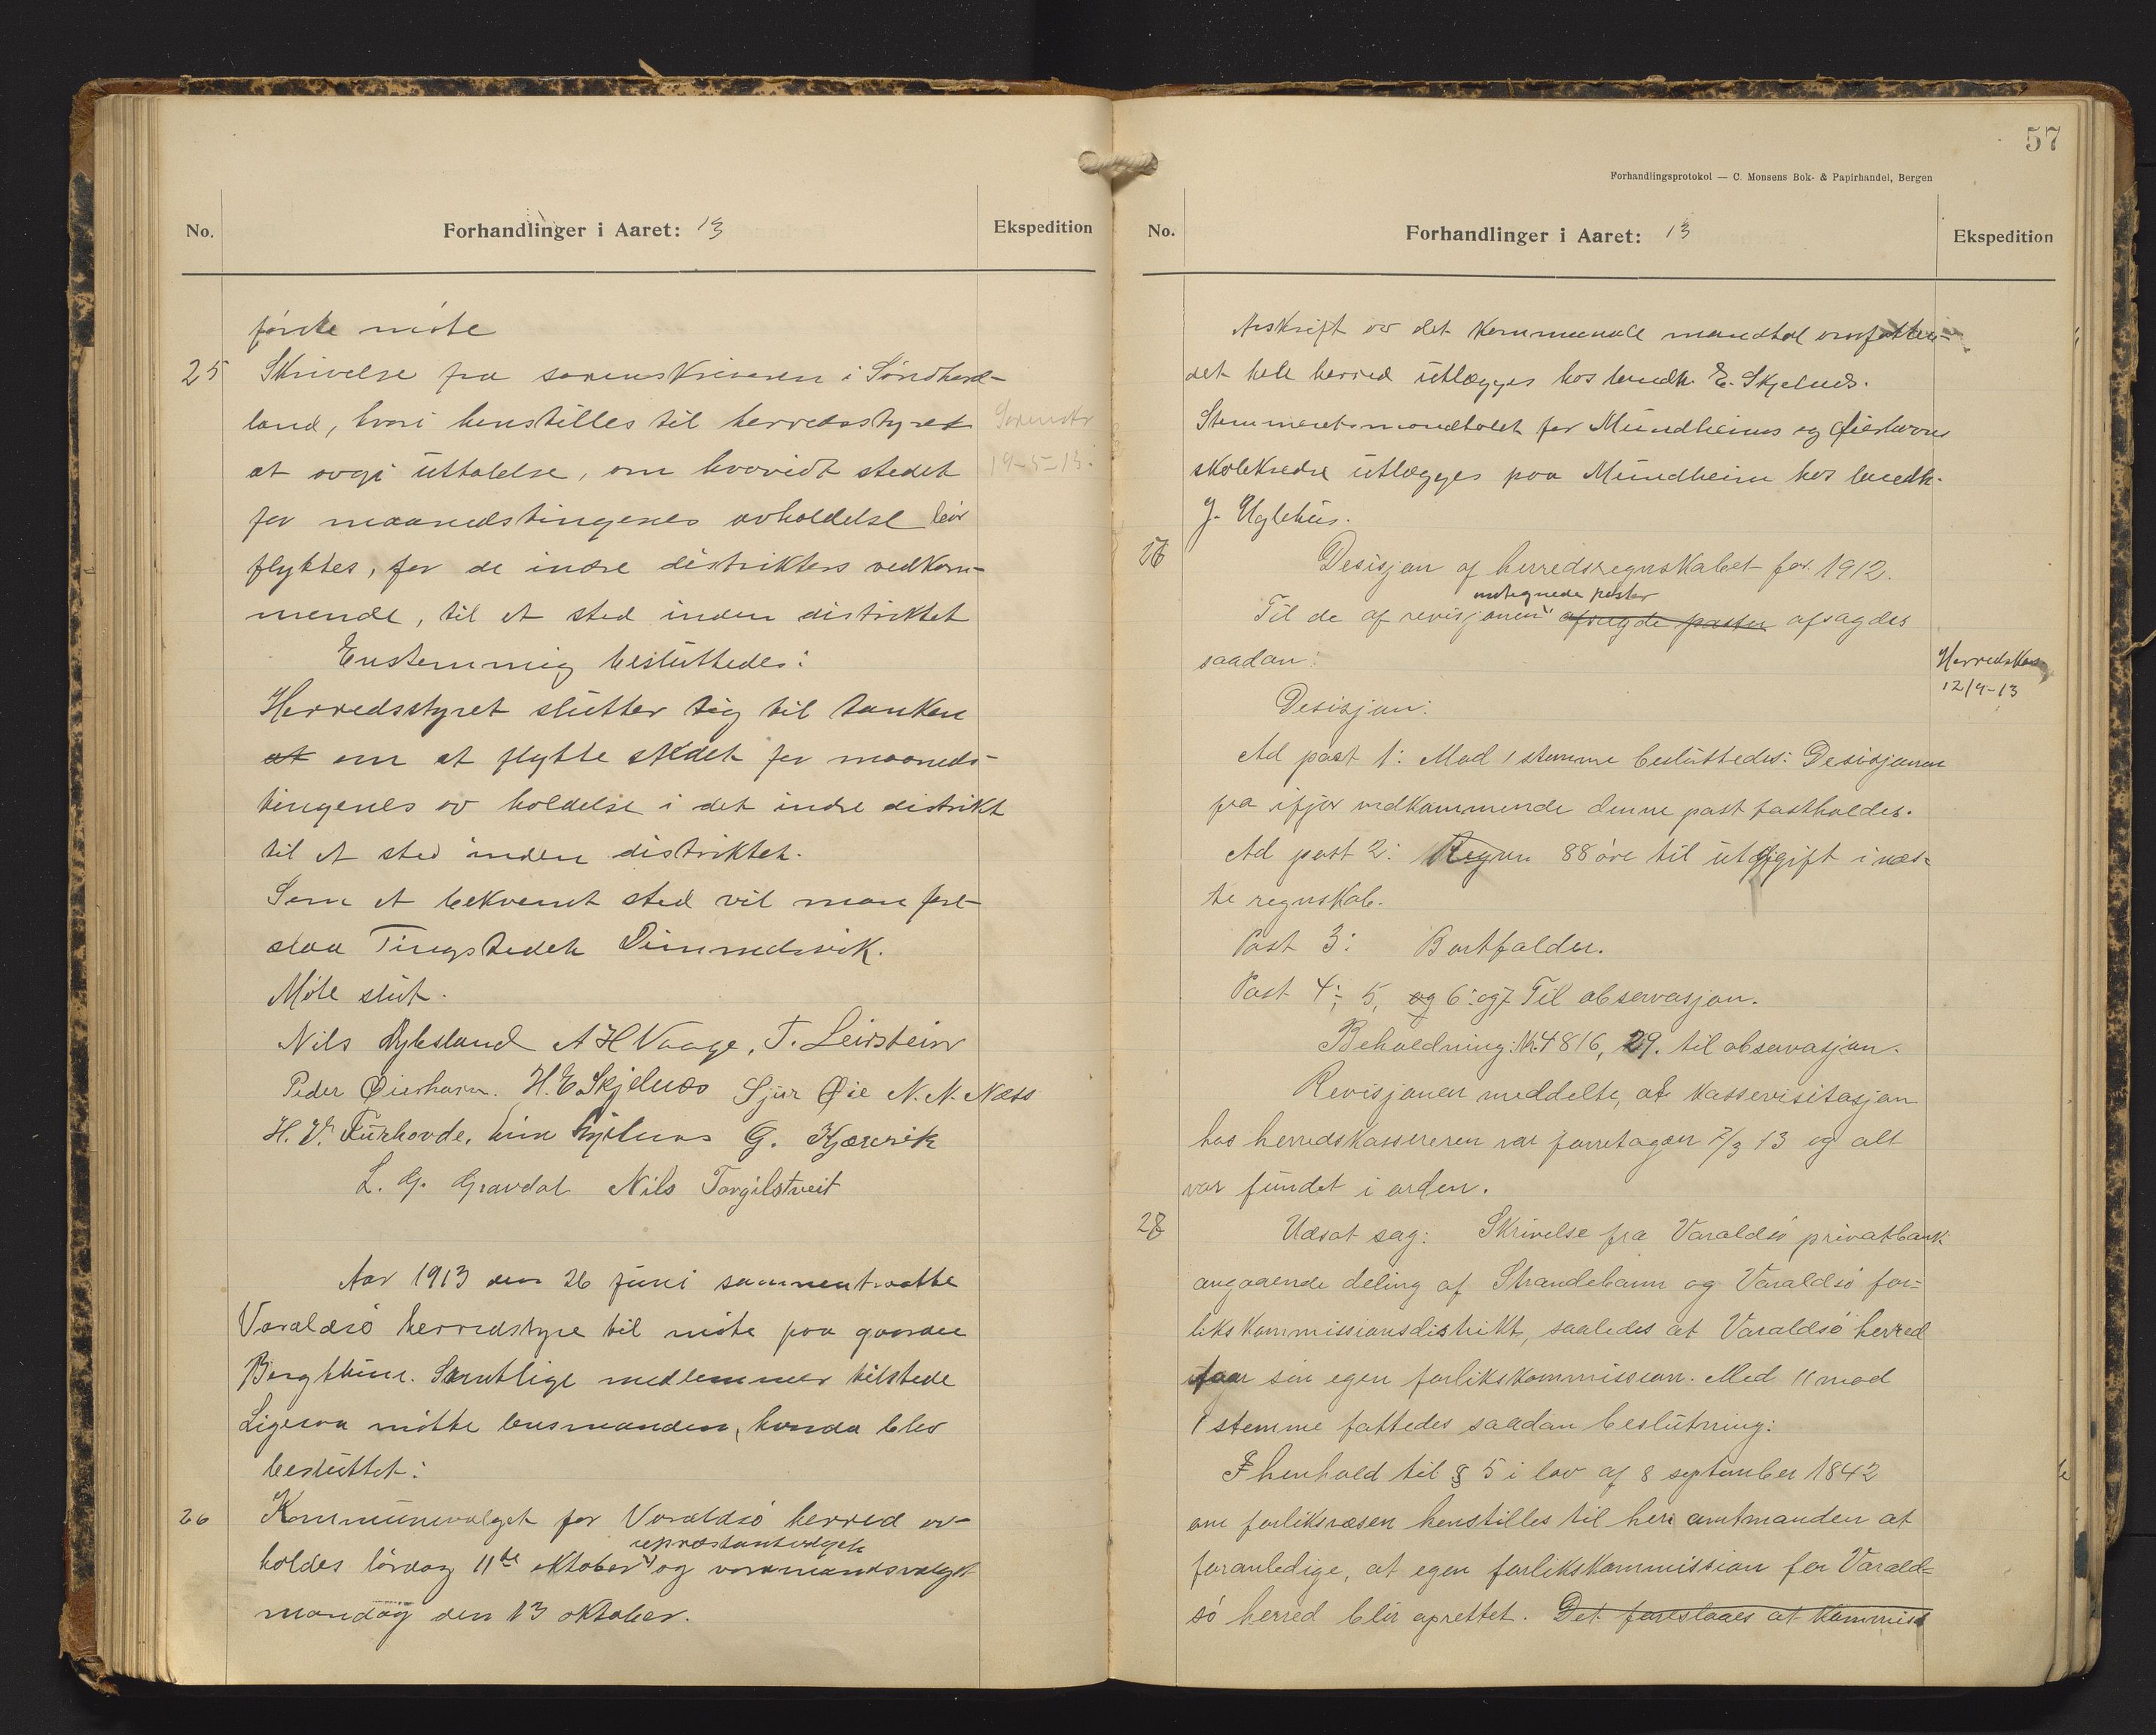 No.
Forhandlinger i Aaret: 13
Ekspedition
første møte
25 Skrivelse fra sorenskriveren i Søndhord-
land, hvori henstilles til herredsstyret
at avgi uttalelse, om hvorvidt stedet
for maanedstingenes avholdelse bør
flyttes, for de indre distrikters vedkom-
mende, til et sted inden distriktet
Sorenskr
19-5-13.
Enstemmig besluttedes:
Herredsstyret slutter sig til tanken
at om at flytte stedet for maaneds-
tingenes av holdelse i det indre distrikt
til et sted inden distriktet.
Som et bekvemt sted vil man fore-
slaa Tingstedet Dimmelsvik.
Møte slut.
Nils Dyksland A H Vaage, T. Leirstein
Peder Øierhavn. H. E Skjelnæs Sjur Øie N. N. Næss
H. V. Furhovde. Skjelnæs G. Kjærevik
L. G. Gravdal Nils Torgilstveit
Aar 1913 den 26 juni sammentraatte
Varaldsø herredstyre til møte paa gaarden
Bergthun. Samtlige medlemmer tilstede
Ligesaa møtte lensmanden, hvorda blev
besluttet:
26 Kommunevalget for Varaldsø herred av-
representvalget
holdes lørdag 11te oktober og varamandsvalget
mandag den 13 oktober.
57
Forhandlingsprotokol — C. Monsens Bok- & Papirhandel, Bergen
No.
Forhandlinger i Aaret: 13
Ekspedition
Avskrift av det kommunale mandtal omfatten-
det hele herred utlægges hos landh. E. Skjelnæs.
Stemmeretsmandtalet for Mundheims og Øierhavns
skolekredse utlægges paa Mundheim hos landh.
J. Uglehus.
27 Desisjon af herredsregnskabet for 1912.
antegnede poster
Til de af revisjonen afsagde poster afsagdes
saadan:
Herredskas
12/9-13
Desisjon:
Ad post 1: Mod 1 stemme besluttedes: Desisjonen
fra ifjor vedkommende denne post fastholdes.
Ad post 2: 88 øre til utgift i næs-
te regnskab.
Post 3: Bortfalder.
Post 4; 5, og 6. og 7 Til observasjon.
Beholdning: Kr. 4816, 29. til observasjon.
Revisjonen meddelte, at kassevisitasjon
hos herredskassereren var foretagen 7/3 13 og alt
var fundet i orden.
28 Udsat sag: Skrivelse fra Varaldsø privatbank
angaaende deling af Strandebarm og Varaldsø for-
likskommissionsdistrikt, saaledes at Varaldsø herred
faar sin egen forlikskommission. Med 11 mod
1 stemme fattedes saadan beslutning:
I henhold til § 5 i lov af 8 september 1842
om forliksvæsen henstilles til herr amtmanden at
foranledige, at egen forlikskommission for Varald-
sø herred blir oprettet. Det foreslaaes at kommiss